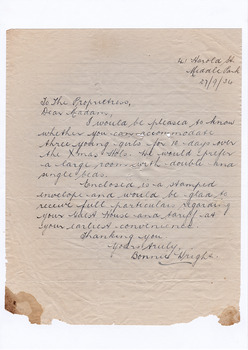 Harold St.
Middle Park
27/9/34
To The Proprietress,
Dear Madam,
I would be pleased to know
whether you can accommodate
three young girls for 10 days over
the Xmas Hols. We would prefer
a large room with double and
single beds.
Enclosed is a stamped
envelope and would be glad to
receive full particulars regarding
your Guest House and tariff at
your earliest convenience.
Thanking you
Yours truly,
Bonnie Wright